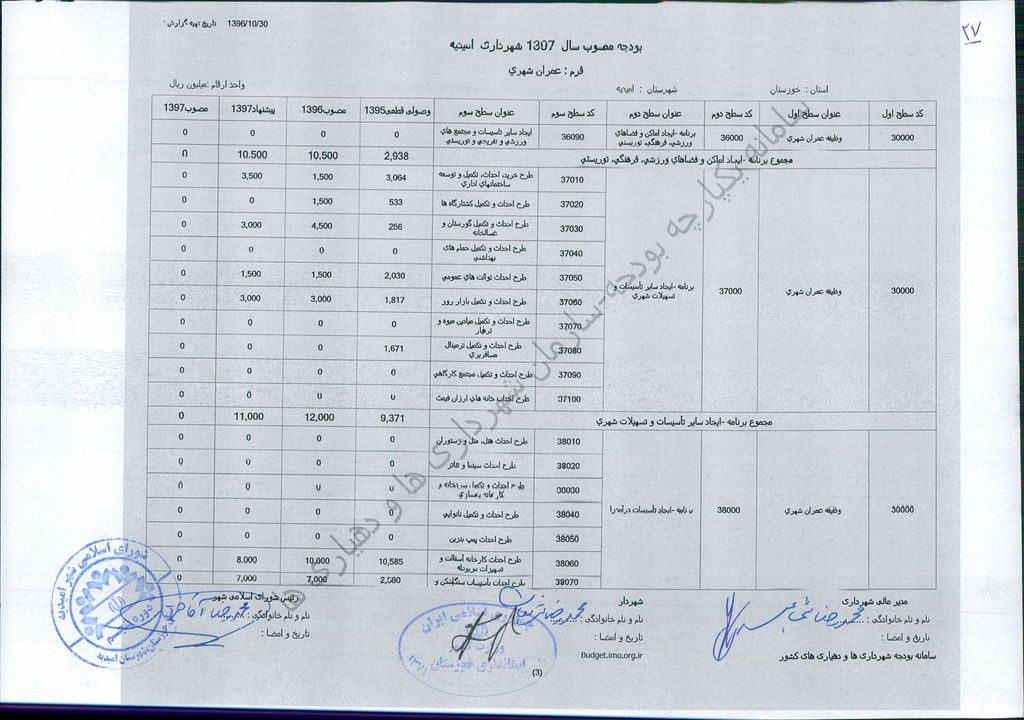 ۲۷
تاریخ تهیه گزارش : 1396/10/30
بودجه مصوب سال 1397 شهرداری امیدیه
فرم : عمران شهري
استان : خوزستان شهرستان : امیدیه واحد ارقام :میلیون ریال
کد سطح اول عنوان سطح اول کد سطح دوم عنوان سطح دوم کد سطح سوم عنوان سطح سوم وصولی قطعی1395 مصوب1396 پیشنهاد1397 مصوب1397
30000 وظیفه عمران شهري 36000 برنامه -ایجاد اماکن و فضاهاي ورزشي، فرهنگي، توریستي 36090 ایجاد سایر تأسیسات و مجتمع هاي ورزشي و تفریحي و توریستي 0 0 0 0
مجموع برنامه -ایجاد اماکن و فضاهاي ورزشي، فرهنگي، توریستي 2,938 10,500 10,500 0
30000 وظیفه عمران شهري 37000 برنامه -ایجاد سایر تأسیسات و تسهیلات شهري
37010 طرح خرید، احداث، تکمیل و توسعه ساختمانهاي اداري 3,064 1,500 3,500 0
37020 طرح احداث و تکمیل کشتارگاه ها 533 1,500 0 0
37030 طرح احداث و تکمیل گورستان و غسالخانه 256 4,500 3,000 0
37040 طرح احداث و تکمیل حمام هاي بهداشتي 0 0 0 0
37050 طرح احداث توالت هاي عمومي 2,030 1,500 1,500 0
37060 طرح احداث و تکمیل بازار روز 1,817 3,000 3,000 0
37070 طرح احداث و تکمیل میادین میوه و تره‌بار 0 0 0 0
37080 طرح احداث و تکمیل ترمینال مسافربري 1,671 0 0 0
37090 طرح احداث و تکمیل مجتمع کارگاهي 0 0 0 0
37100 طرح احداث خانه هاي ارزان قیمت 0 0 0 0
مجموع برنامه -ایجاد سایر تأسیسات و تسهیلات شهري 9,371 12,000 11,000 0
30000 وظیفه عمران شهري 38000 برنامه -ایجاد تأسیسات درآمدزا
38010 طرح احداث هتل، متل و رستوران 0 0 0 0
38020 طرح احداث سینما و تئاتر 0 0 0 0
38030 طرح احداث و تکمیل سردخانه و کارخانه یخسازي 0 0 0 0
38040 طرح احداث و تکمیل نانوایي 0 0 0 0
38050 طرح احداث پمپ بنزین 0 0 0 0
38060 طرح احداث کارخانه آسفالت و تجهیزات مربوطه 10,585 10,000 8,000 0
38070 طرح احداث تأسیسات سنگشکن و 2,580 7,000 7,000 0
سامانه یکپارچه بودجه-سازمان شهرداری ها و دهیاری ها
مدیر مالی شهرداری شهردار رییس شورای اسلامی شهر
نام و نام خانوادگی : نام و نام خانوادگی : نام و نام خانوادگی :
تاریخ و امضا : تاریخ و امضا : تاریخ و امضا :
سامانه بودجه شهرداری ها و دهیاری های کشور Budget.imo.org.ir
(3)
شورای اسلامی شهر امیدیه
استانداری خوزستان